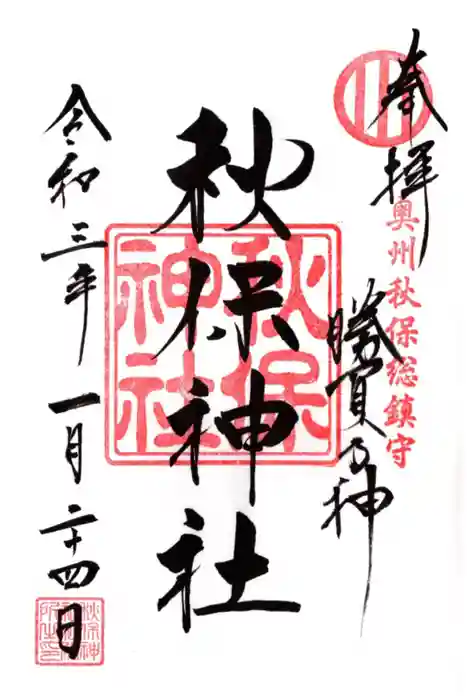 奉拝
奥州秋保総鎮守
勝負乃神
秋保神社
秋保
神社
令和三年一月二十四日
秋保神
所之印